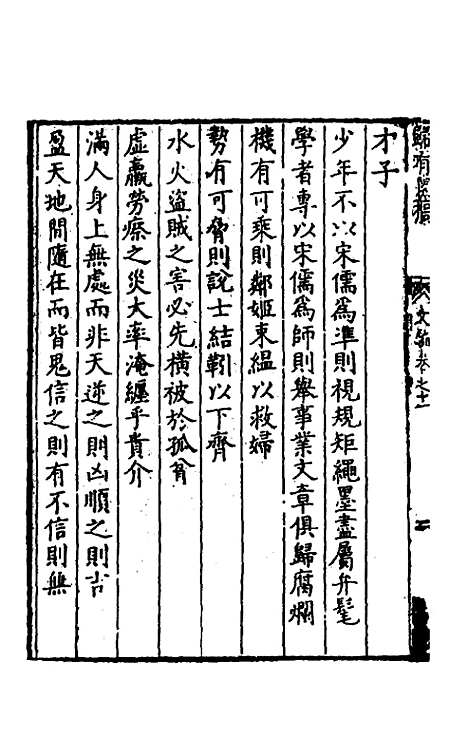 才子
少年不以宋儒爲準則視規矩繩墨盡屬弁髦
學者專以宋儒爲師則舉事業文章俱歸腐爛
機有可乘則鄰姬束縕以救婦
勢有可脅則說士結靷以下齊
水火盜賊之害必先橫被於孤貧
虛羸勞瘵之災大率淹纏乎貴介
滿人身上無處而非天逆之則凶順之則吉
盈天地間隨在而皆鬼信之則有不信則無
歸有園稿
文編卷之十一
二